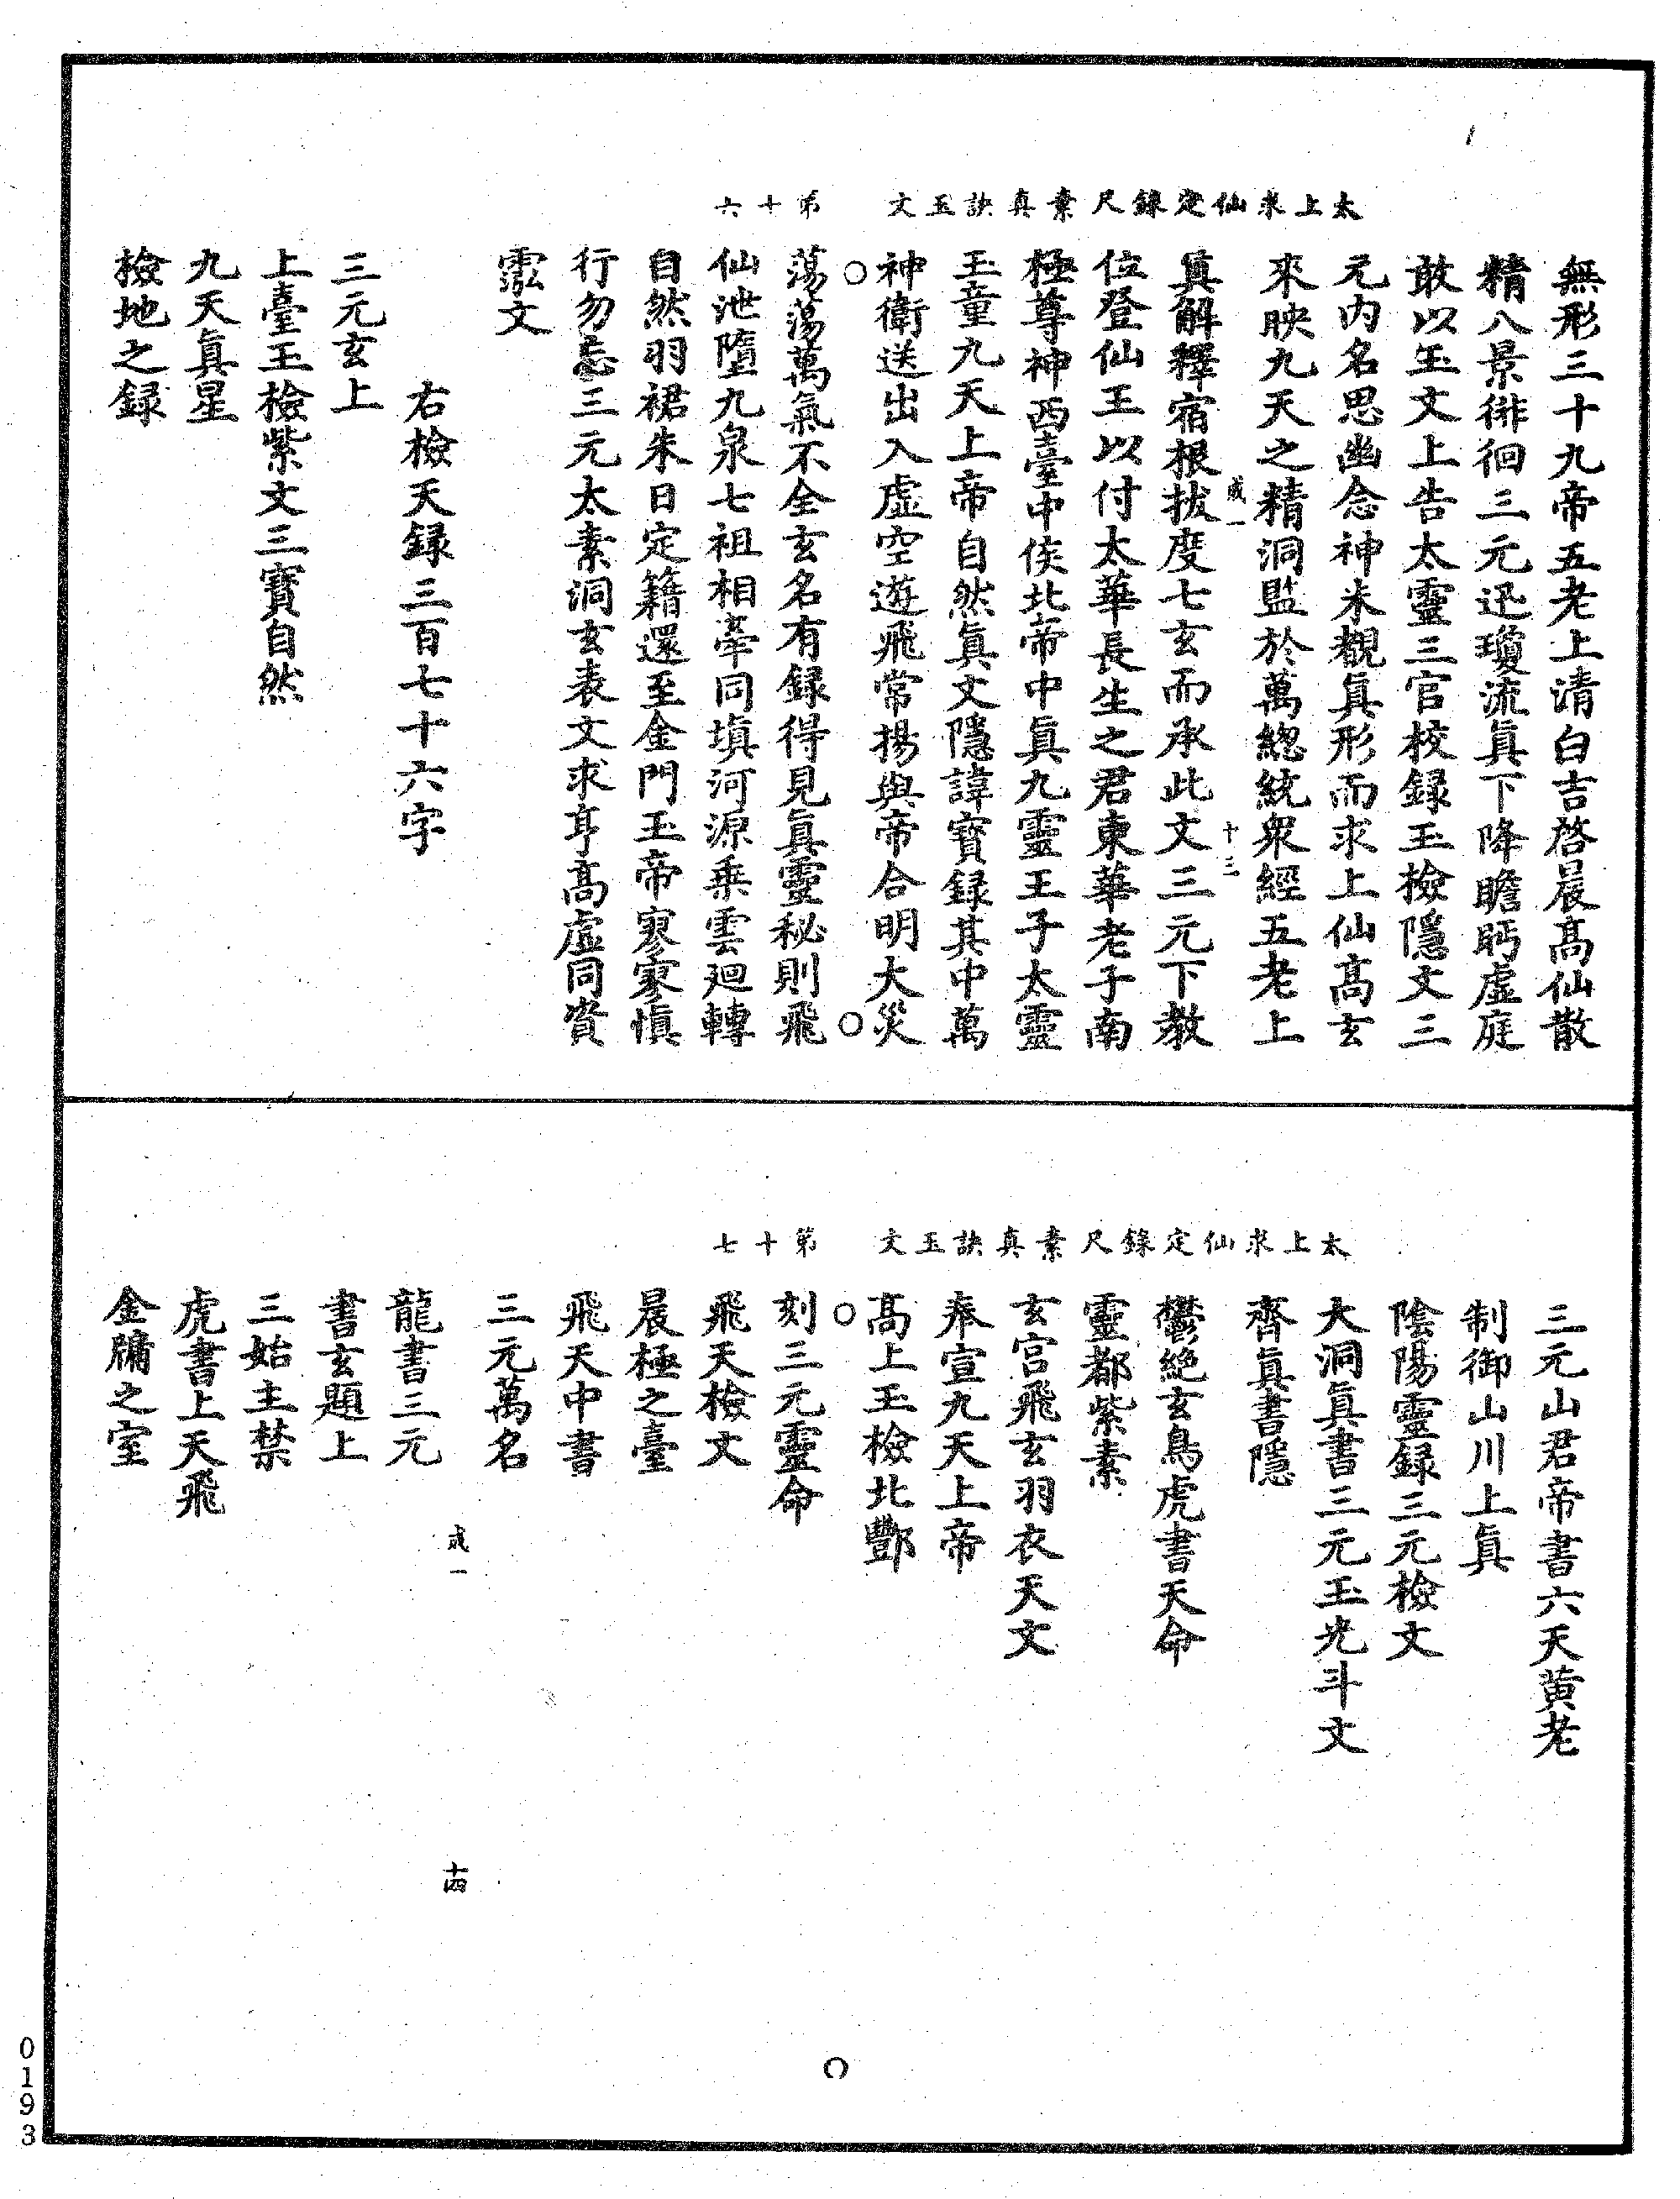 太上求仙定錄尺素真訣玉文　第十六
無形三十九帝五老上清白吉啓晨高仙散
精八景徘徊三元迅瓊流眞下降瞻眄虛庭
敢以玉文上告太靈三官校録玉檢隱文三
元内名思幽念神米覩眞形而求上仙高玄
來映九天之精洞監於萬緫統衆經五老上
咸一　十三
眞解釋宿根拔度七玄而承此文三元下教
位登仙王以付太華長生之君東華老子南
極尊神西臺中侯北帝中眞九靈王子太靈
玉童九天上帝自然眞文隱諱寳録其中萬
神衛送出入虛空遊飛常揚與帝合明大災
蕩蕩萬氣不全玄名有録得見眞靈秘則飛
仙泄墮九泉七祖相牽同塡河源乘雲廻轉
自然羽裙朱日定籍還至金門玉帝寥寥愼
行勿忘三元太素洞玄表文求亨高虛同資
霐文
右檢天録三百七十六字
三元玄上
上臺玉檢紫文三寳自然
九天眞星
檢地之録
太上求仙定錄尺素真訣玉文　第十七
三元山君帝書六天黄老
制御山川上眞
陰陽靈録三元檢文
大洞眞書三元玉光斗文
齊眞書隱
鬱絶玄鳥虎書天命
靈都紫素
玄宫飛玄羽衣天文
奉宣九天上帝
高上玉檢北酆
刻三元靈命
飛天檢文
晨極之臺
飛天中書
三元萬名
咸一　十四
龍書三元
書玄題上
三始主禁
虎書上天飛
金牗之室
0193